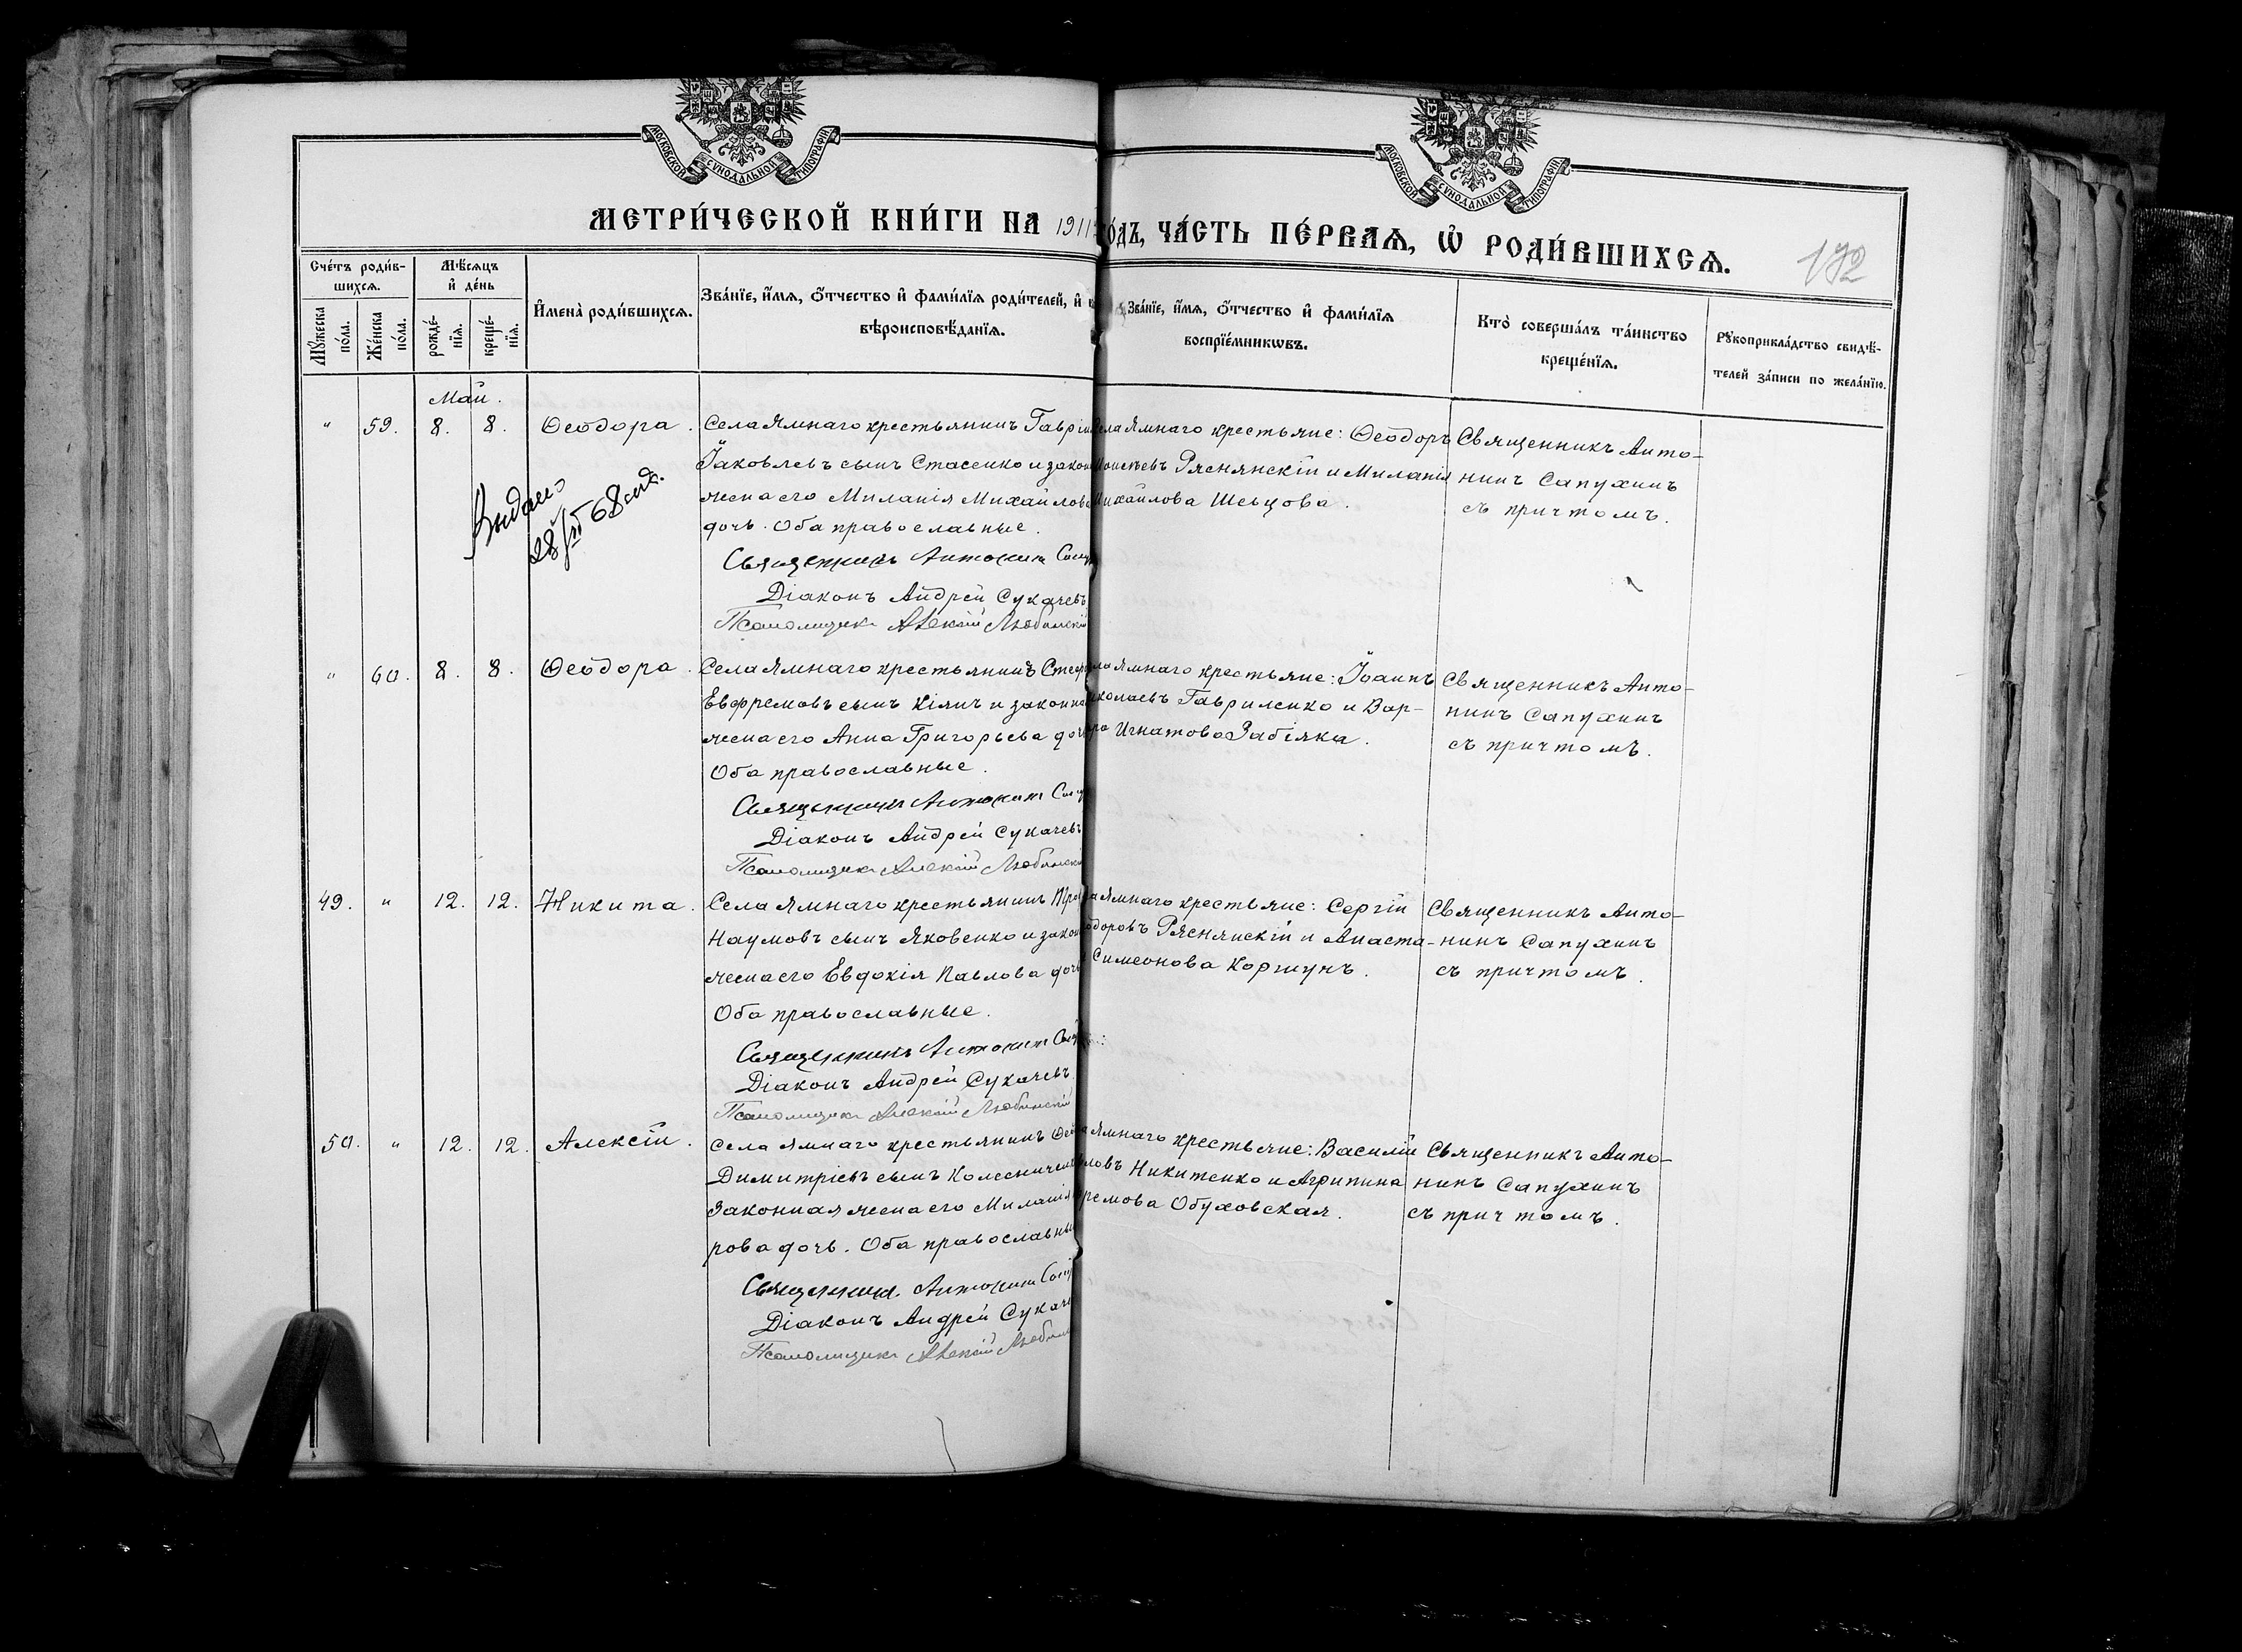 МОСКОВСКОЙ СѴНОДАЛЬНОЙ ТИПОГРАФІИ
МОСКОВСКОЙ СѴНОДАЛЬНОЙ ТИПОГРАФІИ
МЕТРИ́ЧЕСКОЙ КНИ́ГИ НА 1911
О́ДЪ, ЧА́СТЬ ПЕ́РВАѦ, Ѽ РОДИ́ВШИХСѦ.
172
Сче́тъ роди́в-
шихсѧ.
Мꙋ́жеска по́ла.
Же́нска по́ла.
Мѣ́сѧцъ
и҆ де́нь
рожде́-нїѧ.
креще́-нїѧ.
И҆мена̀ роди́вшихсѧ.
Зва́нїе, и҆́мѧ, ѻ҆́тчество и҆ фами́лїѧ роди́телей, и҆
вѣроисповѣ́данїѧ.
Зва́нїе, и҆́мѧ, ѻ҆́тчество и҆ фами́лїѧ
воспрїе́мникѡвъ.
Кто̀ соверша́лъ та́инство
креще́нїѧ.
Рꙋкоприкла́дство свидѣ́-
телей за́писи по жела́нїю.
Май.
" 59. 8. 8. Ѳеодора.
Села Ямнаго крестьянинъ Гаврі
Іаковлевъ сынъ Стасенко и закон
жена его Миланія Михайлова
дочь. Оба православные.
Священникъ Антонинъ Сапу
Діаконъ Андрей Сукачевъ
Псаломщикъ Алексій Любинскій
ела Ямнаго крестьяне: Ѳеодоръ
Моисѣевъ Ряснянскій и Миланія
Михайлова Шевцова.
Священникъ Анто-
нинъ Сапухинъ
съ причтомъ.
Выдано
28/III 68
" 60. 8. 8. Ѳеодора.
Села Ямнаго крестьянинъ Стеф
Евфремовъ сынъ Кіяич и законна
жена его Анна Григорьева доч
Оба православные.
Священникъ Антонинъ Сапу
Діаконъ Андрей Сукачевъ
Псаломщикъ Алексій Любинскій
ла Ямнаго крестьяне: Іоаннъ
иколаевъ Гавриленко и Вар-
ра Игнатова Забіяка.
Священникъ Анто-
нинъ Сапухинъ
съ причтомъ.
49. " 12. 12. Никита.
Села Ямнаго крестьянинъ Про
Наумовъ сынъ Яковенко и закон
жена его Евдокія Павлова дочь
Оба православные.
Священникъ Антонинъ Сапу
Діаконъ Андрей Сукачевъ
Псаломщикъ Алексій Любинскій
а Ямнаго крестьяне: Сергій
одоровъ Ряснянскій и Анаста-
Симеонова Коршунъ.
Священникъ Анто-
нинъ Сапухинъ
съ причтомъ.
50. " 12. 12. Алексій.
Села Ямнаго крестьянинъ Ѳео
Димитріевъ сынъ Колесничен
законная жена его Миланія
рова дочь. Оба православны
Священникъ Антонинъ Сапу
Діаконъ Андрей Сукаче
Псаломщикъ Алексій Любин
а Ямнаго крестьяне: Василій
ловъ Никитенко и Агрипина
ремова Обуховская.
Священникъ Анто-
нинъ Сапухинъ
съ причтомъ.